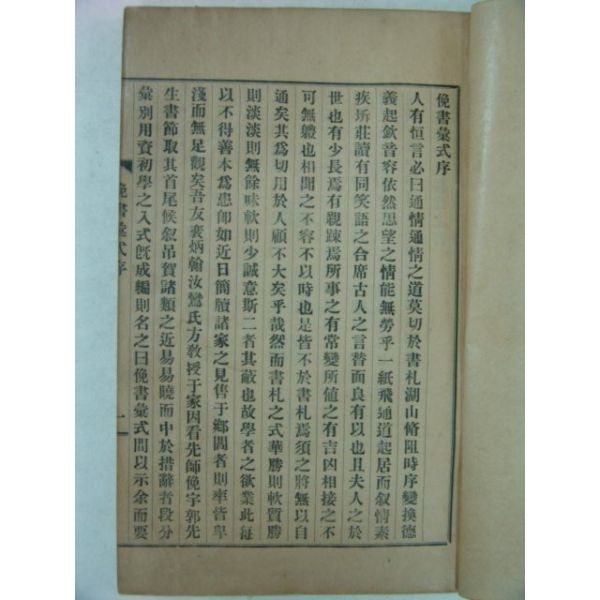 俛書彙式序
人有恒言必曰通情通情之道莫切於書札湖山脩阻時序變換德
義起欽音容依然思望之情能無勞乎一紙飛通道起居而叙情素
疾坼莊讀有同笑語之合席古人之言替面良有以也且夫人之於
世也有少長焉有親踈焉所事之有常變所値之有吉凶相接之不
可無軆也相聞之不容不以時也是皆不於書札焉須之將無以自
通矣其爲切用於人顧不大矣乎哉然而書札之式華勝則軟質勝
則淡淡則無餘味軟則少誠意斯二者其蔽也故學者之欲業此每
以不得善本爲患卽如近日簡牘諸家之見售于鄕閭者則率皆卑
淺而無足觀矣吾友裵炳翰汝鸞氏方敎授于家因看先師俛宇郭先
生書節取其首尾候叙吊賀諸類之近易易曉而中於措辭者段分
彙別用資初學之入式旣成編則名之曰俛書彙式間以示余而要
俛書彙式序
一